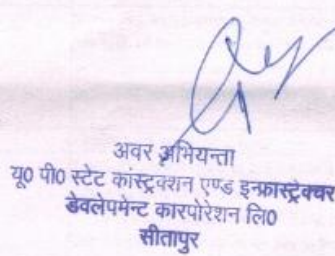 अवर अभियन्ता
यू0 पी0 स्टेट कांस्ट्रक्शन एण्ड इन्फ्रास्ट्रेक्चर
डेवलेपमेन्ट कारपोरेशन लि0
सीतापुर